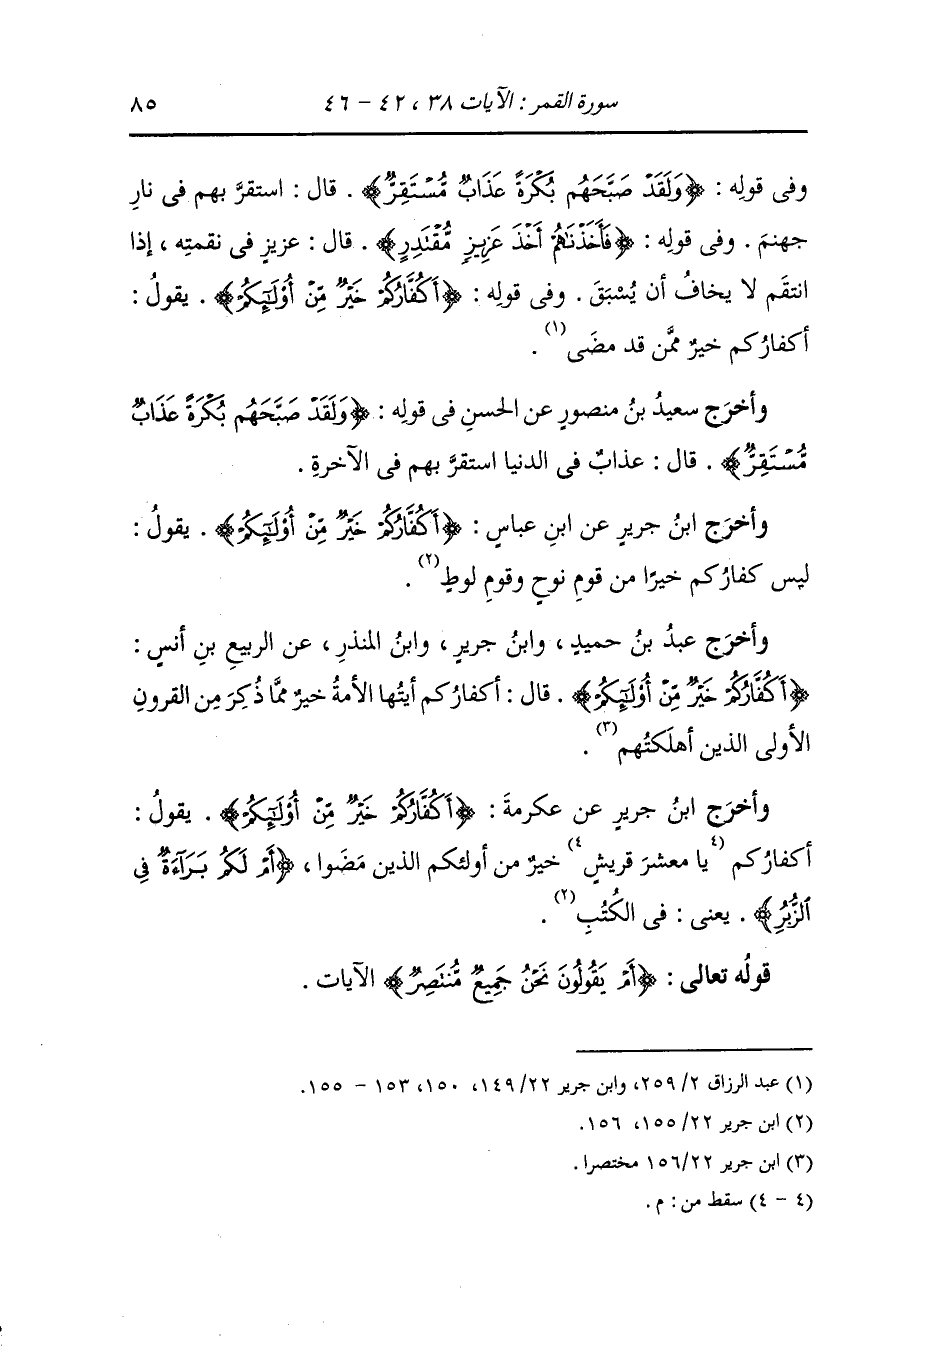 سورة القمر : الآيات ٣٨ ، ٤٢ - ٤٦ ٨٥
وفى قولِه : ﴿وَلَقَدْ صَبَّحَهُم بُكْرَةً عَذَابٌ مُّسْتَقِرٌّ﴾ . قال : استقرَّ بهم فى نارِ
جهنمَ . وفى قولِه : ﴿فَأَخَذْنَاهُمْ أَخْذَ عَزِيزٍ مُّقْتَدِرٍ﴾ . قال : عزيزٍ فى نقمتِه ، إذا
انتقَم لا يخافُ أن يُسْبَقَ . وفى قوله : ﴿أَكُفَّارُكُمْ خَيْرٌ مِّنْ أُوْلَٰٓئِكُمْ﴾ . يقولُ :
أكفارُكم خيرٌ ممَّن قد مضَى(١) .
وأخرَج سعيدُ بنُ منصورٍ عن الحسنِ فى قولِه : ﴿وَلَقَدْ صَبَّحَهُم بُكْرَةً عَذَابٌ
مُّسْتَقِرٌّ﴾ . قال : عذابٌ فى الدنيا استقرَّ بهم فى الآخرةِ .
وأخرَج ابنُ جريرٍ عن ابنِ عباسٍ : ﴿أَكُفَّارُكُمْ خَيْرٌ مِّنْ أُوْلَٰٓئِكُمْ﴾ . يقولُ :
ليس كفارُكم خيرًا من قومِ نوحٍ وقومِ لوطٍ(٢) .
وأخرَج عبدُ بنُ حميدٍ ، وابنُ جريرٍ ، وابنُ المنذرِ ، عن الربيعِ بنِ أنسٍ :
﴿أَكُفَّارُكُمْ خَيْرٌ مِّنْ أُوْلَٰٓئِكُمْ﴾ . قال : أكفارُكم أيتُها الأمةُ خيرٌ ممَّا ذُكِرَ مِن القرونِ
الأولى الذين أهلَكتُهم(٣) .
وأخرَج ابنُ جريرٍ عن عكرمةَ : ﴿أَكُفَّارُكُمْ خَيْرٌ مِّنْ أُوْلَٰٓئِكُمْ﴾ . يقولُ :
أكفارُكم (٤يا معشرَ قريشٍ٤) خيرٌ من أولئكم الذين مَضَوا ، ﴿أَمْ لَكُم بَرَآءَةٌ فِي
ٱلزُّبُرِ﴾ . يعنى : فى الكُتُبِ(٢) .
قولُه تعالى : ﴿أَمْ يَقُولُونَ نَحْنُ جَمِيعٌ مُّنتَصِرٌ﴾ الآيات .
(١) عبد الرزاق ٢/ ٢٥٩، وابن جرير ٢٢/ ١٤٩، ١٥٠، ١٥٣ - ١٥٥.
(٢) ابن جرير ٢٢/ ١٥٥، ١٥٦.
(٣) ابن جرير ١٥٦/٢٢ مختصرا .
(٤ - ٤) سقط من : م .